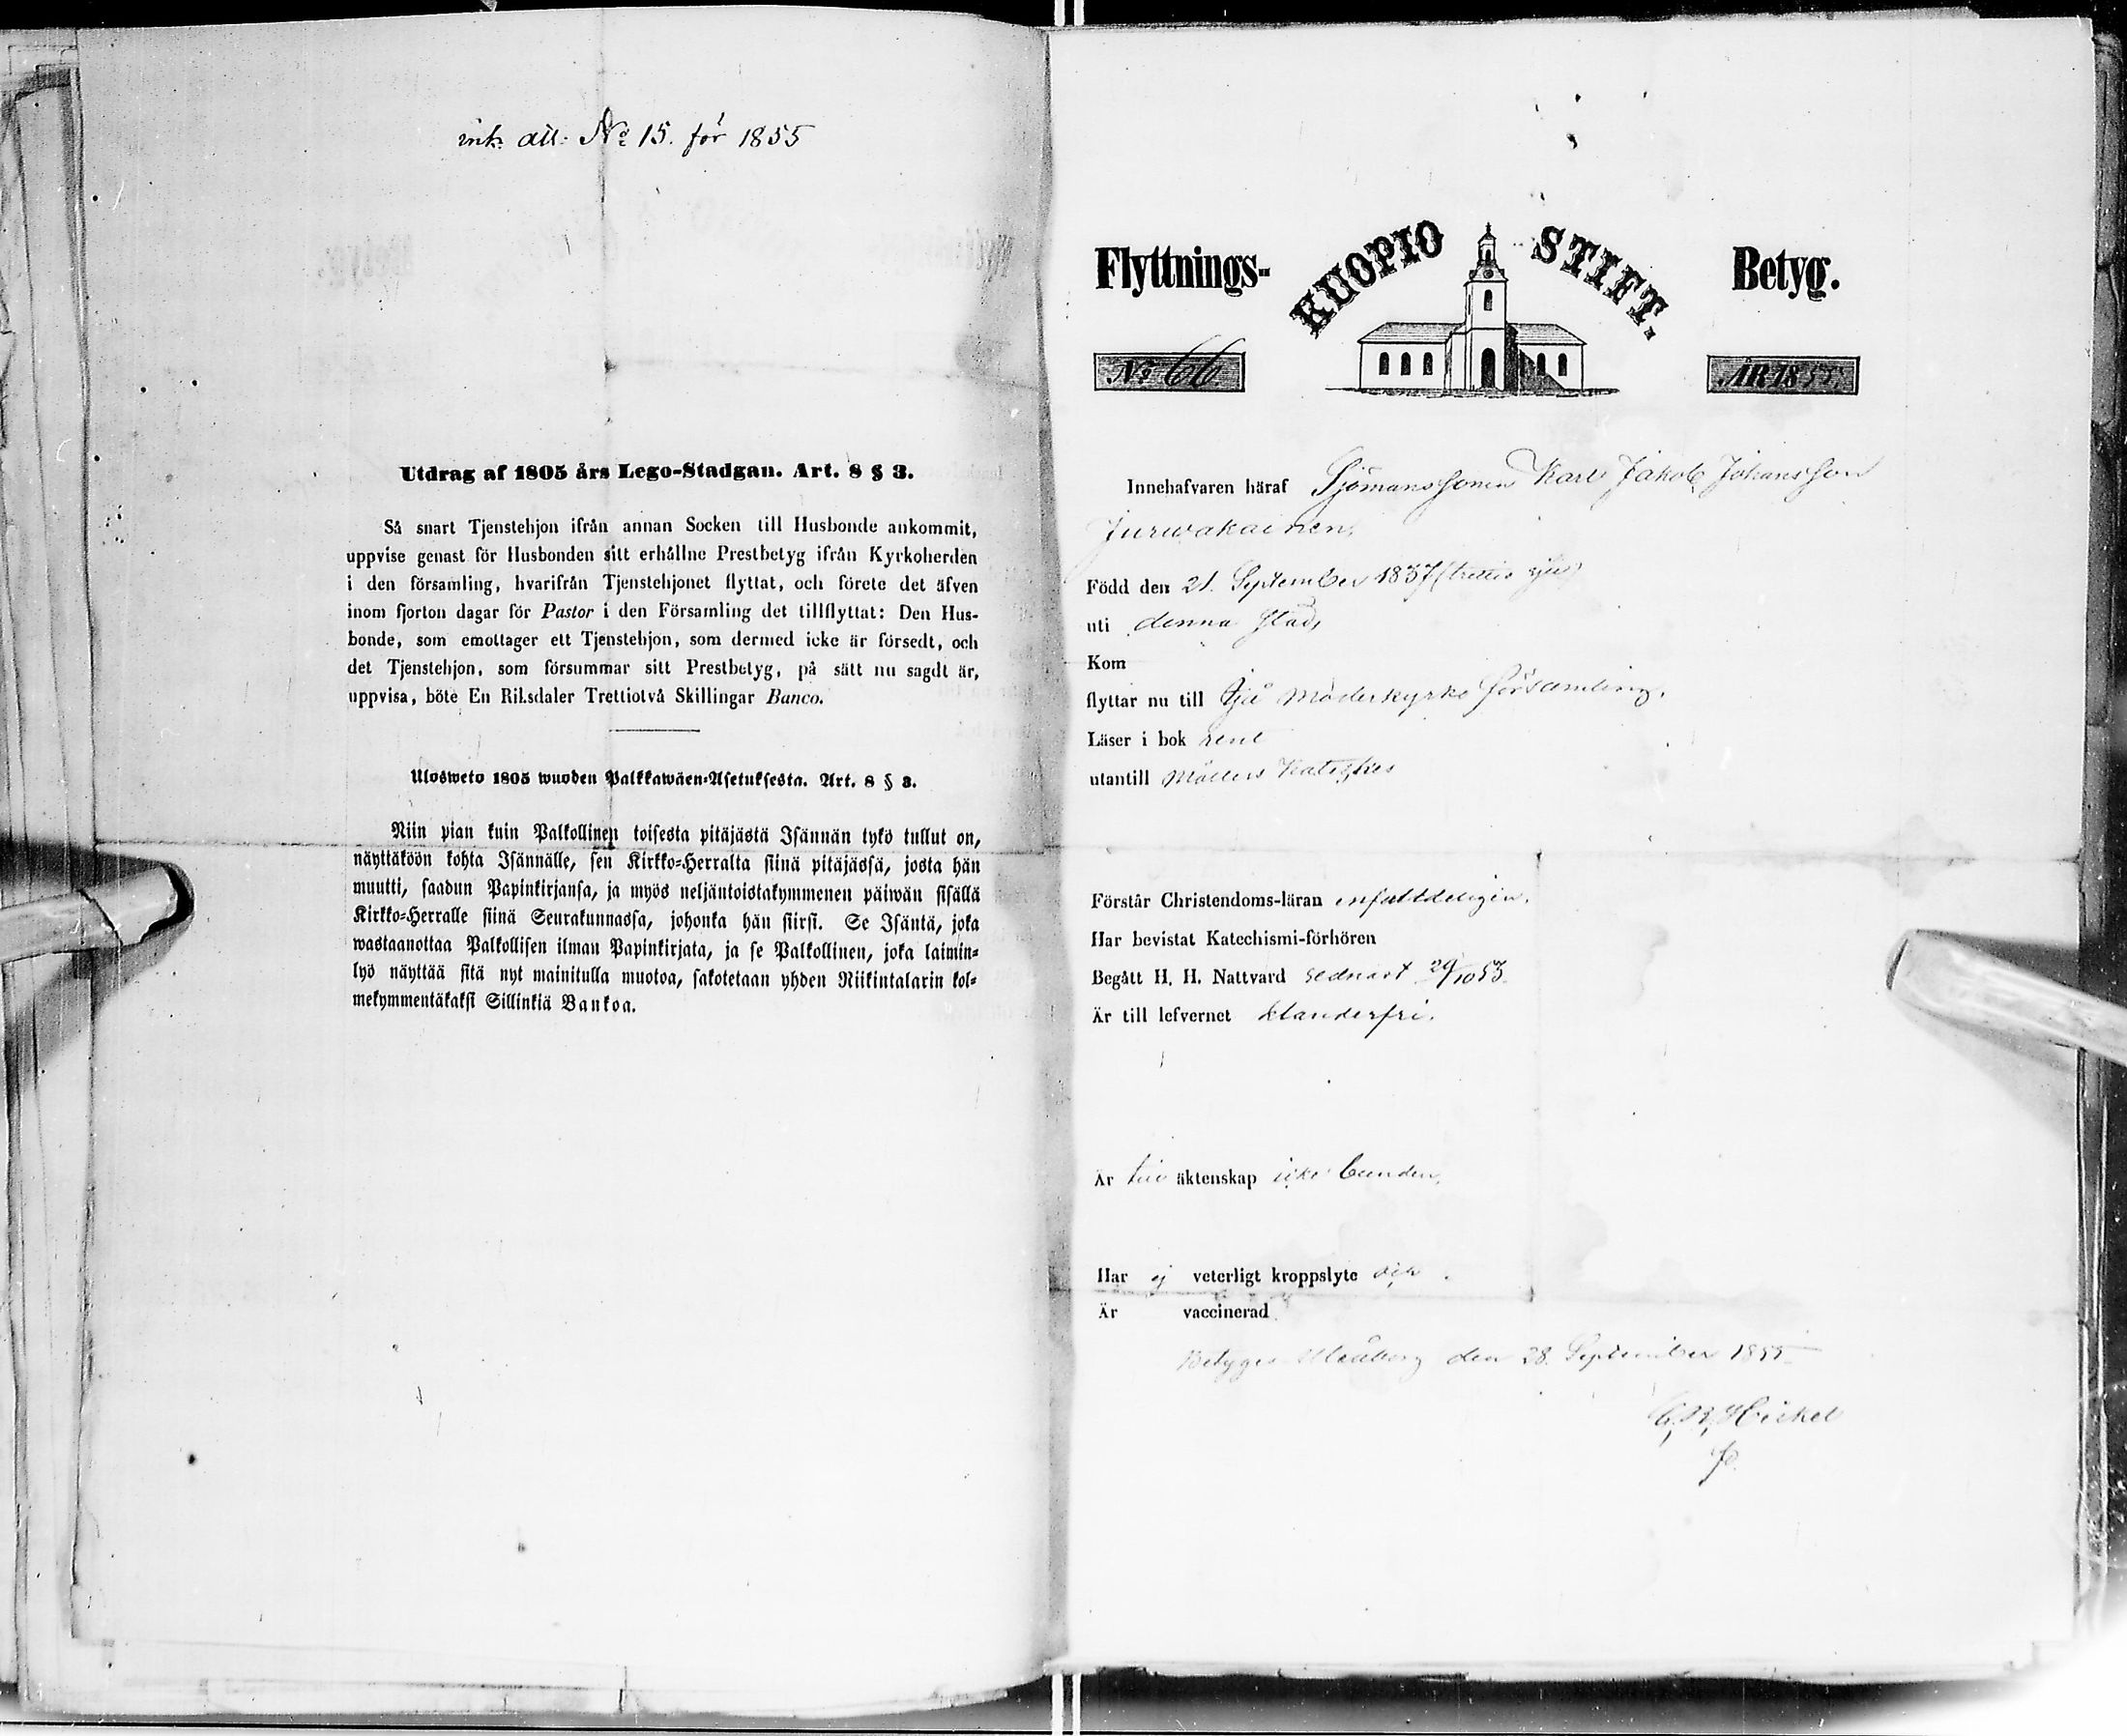 ink. att. No 15. för 1855
Utdrag af 1805 års Lego-Stadgan. Art. 8 § 3.
Så snart Tjenstehjon ifrån annan Socken till Husbonde ankommit,
uppvise genast för Husbonden sitt erhållne Prestbetyg ifrån Kyrkoherden
i den församling, hvarifrån Tjenstehjonet flyttat, och förete det äfven
inom fjorton dagar för Pastor i den Församling det tillflyttat: Den Hus-
bonde, som emottager ett Tjenstehjon, som dermed icke är försedt, och
det Tjenstehjon, som försummar sitt Prestbetyg, på sätt nu sagdt är,
uppvisa, böte En Riksdaler Trettiotvå Skillingar Banco.
Ulosweto 1805 wuoden Palkkawäen-Asetuksesta. Art. 8 § 3.
Niin pian kuin Palkollinen toisesta pitäjästä Isännän tykö tullut on,
näyttäköön kohta Isännälle, sen Kirkko-Herralta siinä pitäjässä, josta hän
muutti, saadun Papinkirjansa, ja myös neljäntoistakymmenen päiwän sisällä
Kirkko-Herralle siinä Seurakunnassa, johonka hän siirsi. Se Isäntä, joka
wastaanottaa Palkollisen ilman Papinkirjata, ja se Palkollinen, joka laimin-
lyö näyttää sitä nyt mainitulla muotoa, sakotetaan yhden Riikintalarin kol-
mekymmentäkaksi Sillinkiä Bankoa.
Flyttnings- KUOPIO STIFT. Betyg.
No 66 ÅR 1855
Innehafvaren häraf Sjömanssonen Karl Jakob Johansson
Jurwakainen,
Född den 21. September 1837 (trettio sju)
uti denna stad,
Kom
flyttar nu till Ijo Moderkyrko församling.
Läser i bok rent
utantill Möllers Kateches
Förstår Christendoms-läran enfaldeligen.
Har bevistat Katechismi-förhören
Begått H. H. Nattvard sednast 29/10 53.
Är till lefvernet klanderfri.
Är till äktenskap icke bunden,
Har ej veterligt kroppslyte och
Är vaccinerad
Betygas Uleåborg den 28. September 1855
Hickel